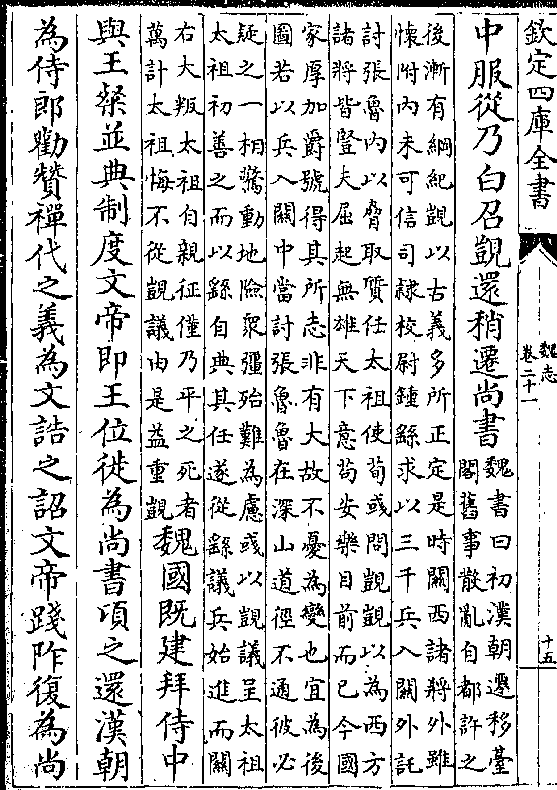 欽定四庫全書
魏志
卷二十一
十五
中服從乃白召覬還稍遷尚書
魏書曰初漢朝遷移臺
閣舊事散亂自都許之
後漸有綱紀覬以古義多所正定是時關西諸將外雖
懷附内未可信司隸校尉鍾繇求以三千兵入關外託
討張魯内以脅取質任太祖使荀彧問覬覬以為西方
諸將皆豎夫屈起無雄天下意苟安樂目前而已今國
家厚加爵號得其所志非有大故不憂為變也宜為後
圖若以兵入關中當討張魯魯在深山道徑不通彼必
疑之一相驚動地險衆彊殆難為慮彧以覬議呈太祖
太祖初善之而以繇自典其任遂從繇議兵始進而關
右大叛太祖自親征僅乃平之死者
萬計太祖悔不從覬議由是益重覬
魏國既建拜侍中
與王粲並典制度文帝即王位徙為尚書頃之還漢朝
為侍郎勸贊禪代之義為文誥之詔文帝踐阼復為尚